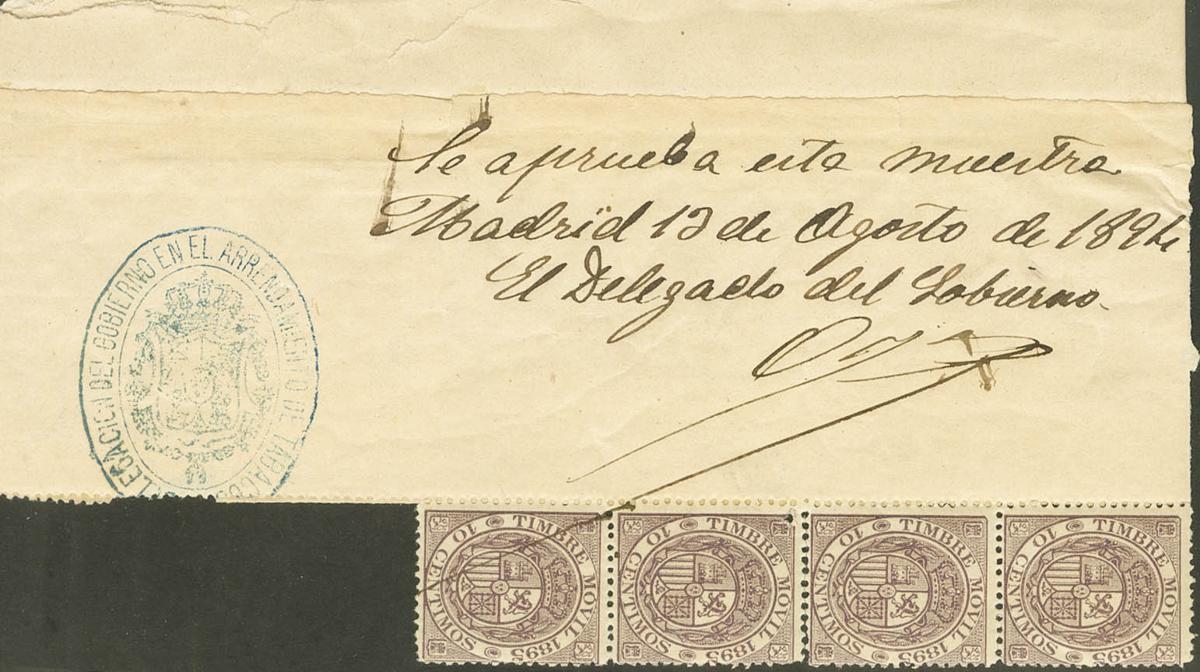 Se aprueba esta muestra
Madrid 13 de Agosto de 1894
El Delegado del Gobierno
DELEGACION DEL GOBIERNO EN EL ARRENDAMIENTO DE TABACOS
TIMBRE MOVIL 1895 10 CENTIMOS
TIMBRE MOVIL 1895 10 CENTIMOS
TIMBRE MOVIL 1895 10 CENTIMOS
TIMBRE MOVIL 1895 10 CENTIMOS